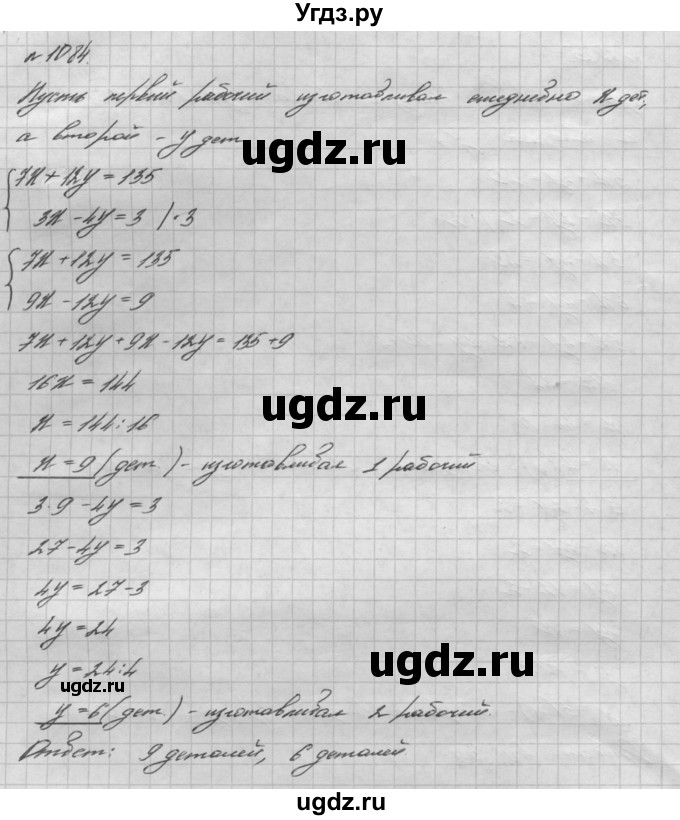 Угдз.ру
№ 1084.
Пусть первый рабочий изготавливал ежедневно x дет,
а второй - y дет
ugdz.ru
7x + 12y = 135
3x - 4y = 3 | · 3
7x + 12y = 135
9x - 12y = 9
7x + 12y + 9x - 12y = 135 + 9
16x = 144
ugdz.ru
x = 144 : 16
x = 9 (дет.) - изготавливал 1 рабочий
3 · 9 - 4y = 3
27 - 4y = 3
4y = 27 - 3
4y = 24
ugdz.ru
y = 24 : 4
ugdz.ru
y = 6 (дет.) - изготавливал 2 рабочий.
Ответ: 9 деталей, 6 деталей
ugdz.ru